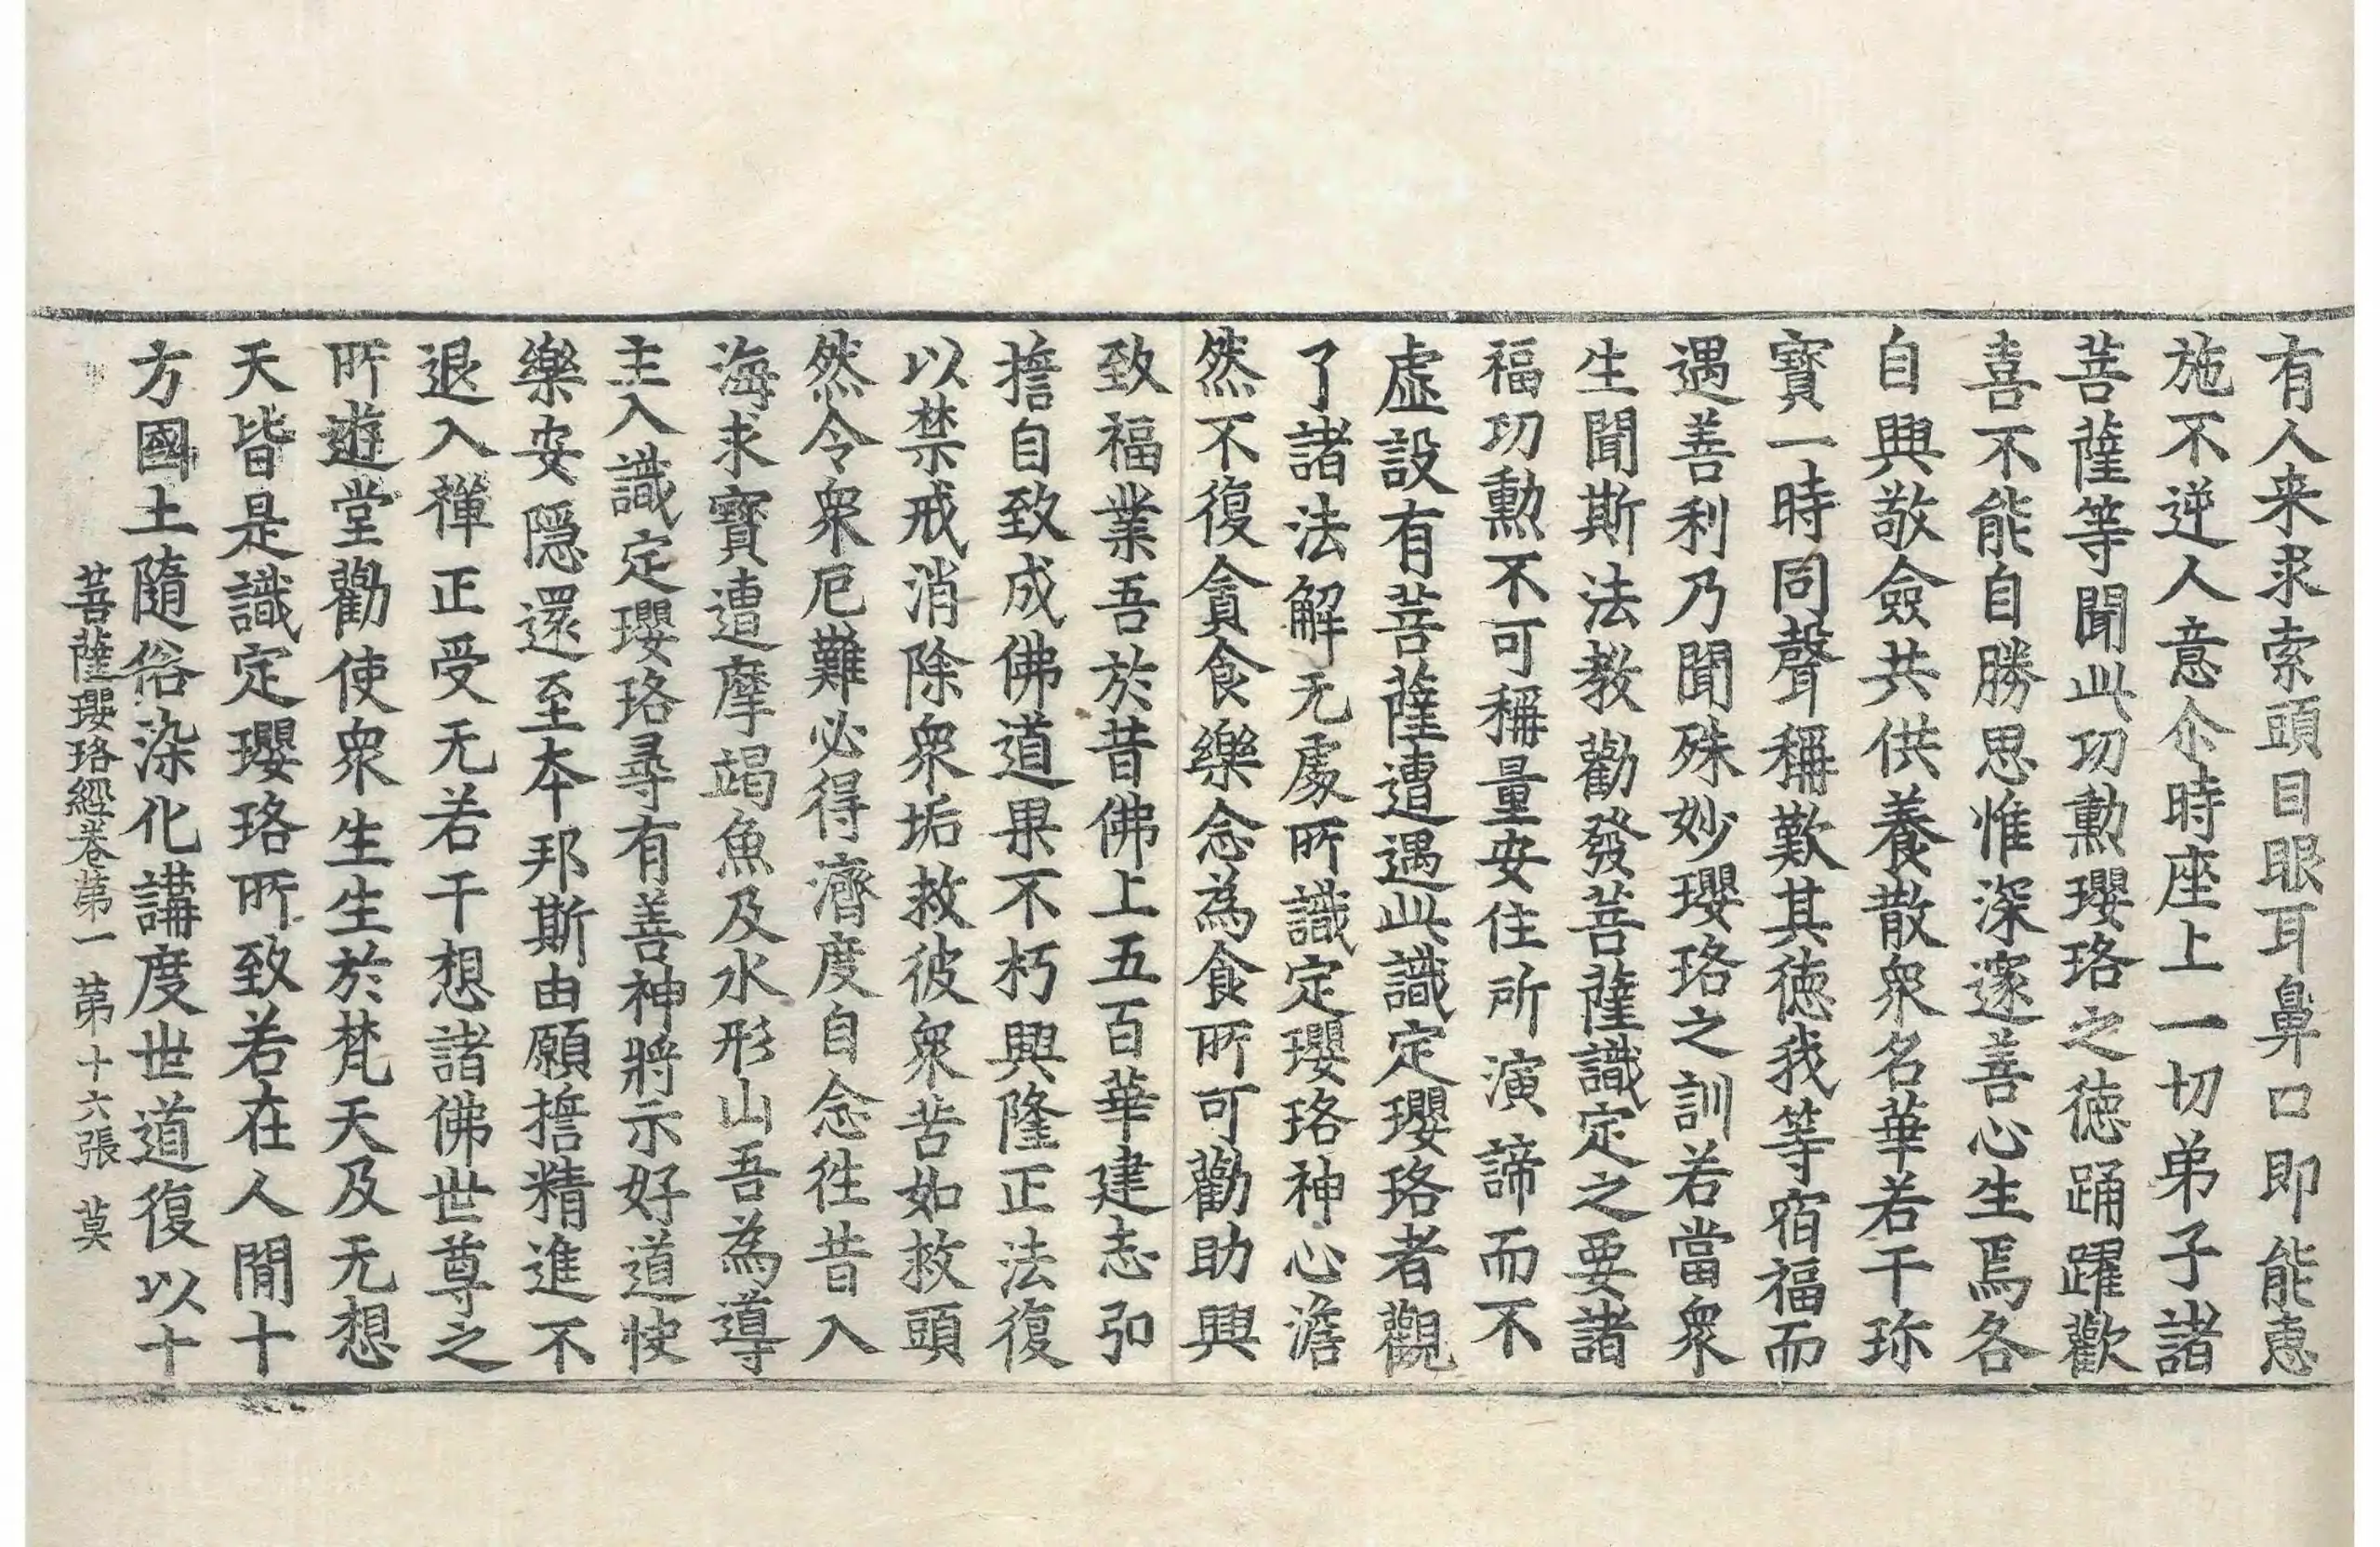 有人来求索頭目眼耳鼻口即能惠
施不逆人意尒時座上一切弟子諸
菩薩等聞此功勲瓔珞之徳踊躍歡
喜不能自勝思惟深邃善心生焉各
自興敬僉共供養散衆名華若干珎
寶一時同聲稱歎其徳我等宿福而
遇善利乃聞殊妙瓔珞之訓若當衆
生聞斯法教勸發菩薩識定之要諸
福功勲不可稱量安住所演諦而不
虚設有菩薩遭遇此識定瓔珞者觀
了諸法解无處所識定瓔珞神心澹
然不復貪食樂念為食所可勸助興
致福業吾於昔佛上五百華建志弘
擔自致成佛道果不朽興隆正法復
以禁戒消除衆垢救彼衆苦如救頭
然令衆厄難必得濟度自念徃昔入
海求寶遭摩竭魚及水形山吾為導
主入識定瓔珞尋有善神將示好道使
樂安隱還至本邦斯由願擔精進不
退入禪正受无若干想諸佛世尊之
所遊堂勸使衆生生於梵天及无想
天皆是識定瓔珞所致若在人間十
方國土隨俗染化講度世道復以十
菩薩瓔珞經卷第一 第十六張 莫